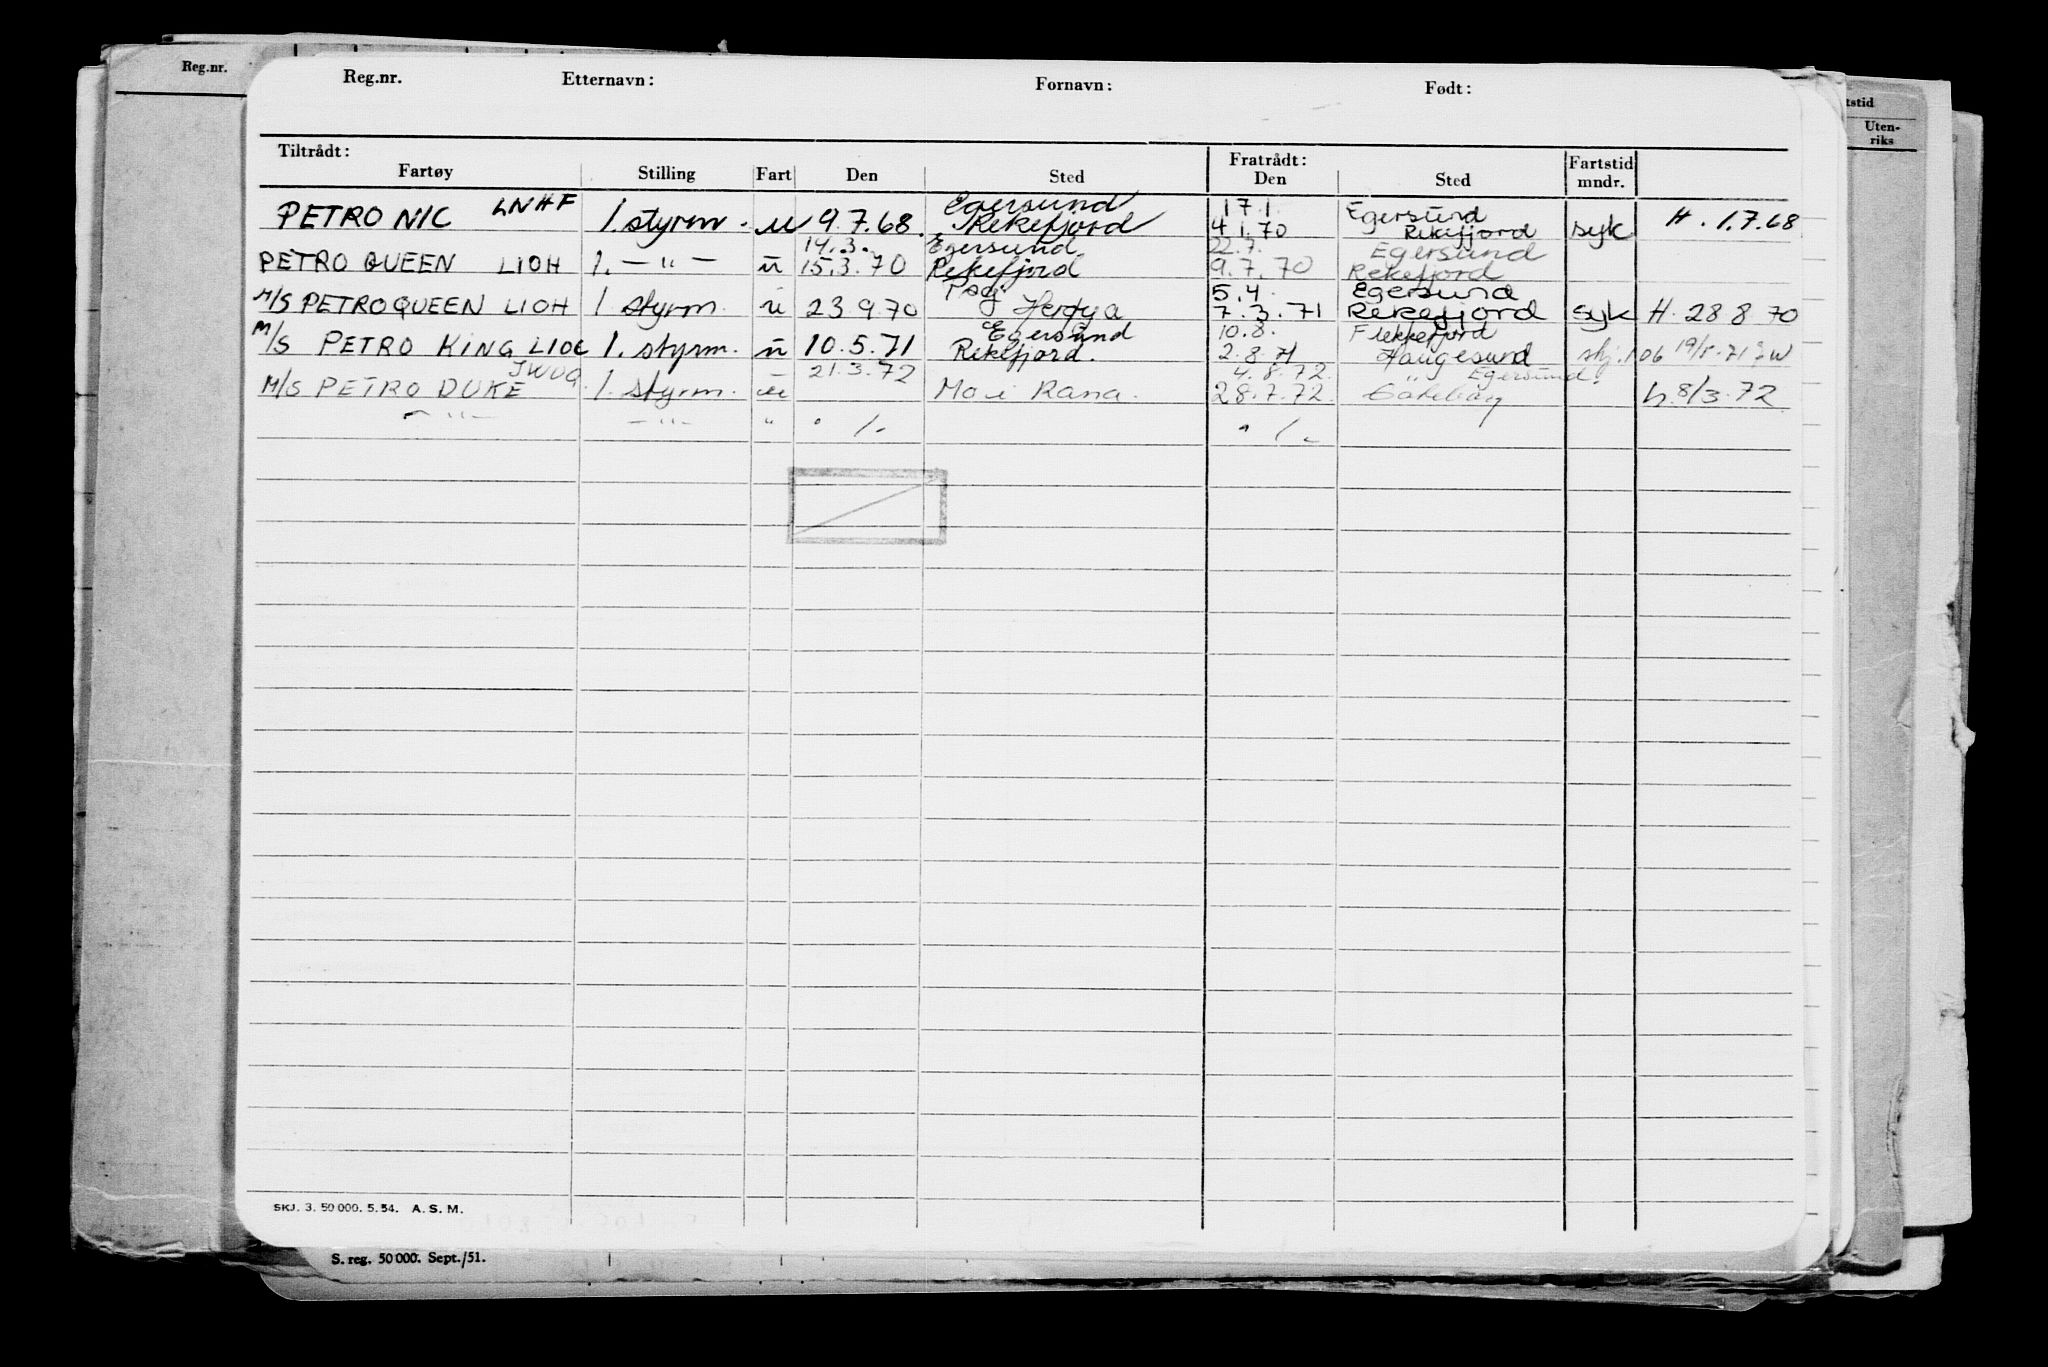 Reg.nr.
Reg.nr. Etternavn: Fornavn: Født:
tstid
Uten-
riks
Tiltrådt: Fratrådt:
Fartøy Stilling Fart Den Sted Den Sted Fartstid mndr.
Egersund 17.1. Egersund
PETRO NIC LNHF 1. styrm. u 9.7.68. Rekefjord 4.1.70 Rekefjord syk H. 1.7.68
14.3. Egersund 22.7. Egersund
PETRO QUEEN LIOH 1. — " — u 15.3.70 Rekefjord 9.7.70 Rekefjord
5.4. Egersund
M/S PETROQUEEN LIOH 1. styrm. u 23.9.70 Herøya 7.3.71 Rekefjord syk H. 28.8.70
Egersund 10.8. Flekkefjord
M/S PETRO KING LIOE 1. styrm. u 10.5.71 Rekefjord. 2.8.71 Haugesund skj. 106 19/5.71
JWUQ 21.3.72 4.8.72. Egersund.
M/S PETRO DUKE 1. styrm. u Mo i Rana. 28.7.72. Göteborg h. 8/3.72.
— " — — " — " . /. . /.
SKJ. 3. 50 000. 5. 54. A. S. M.
S. reg. 50 000. Sept./51.